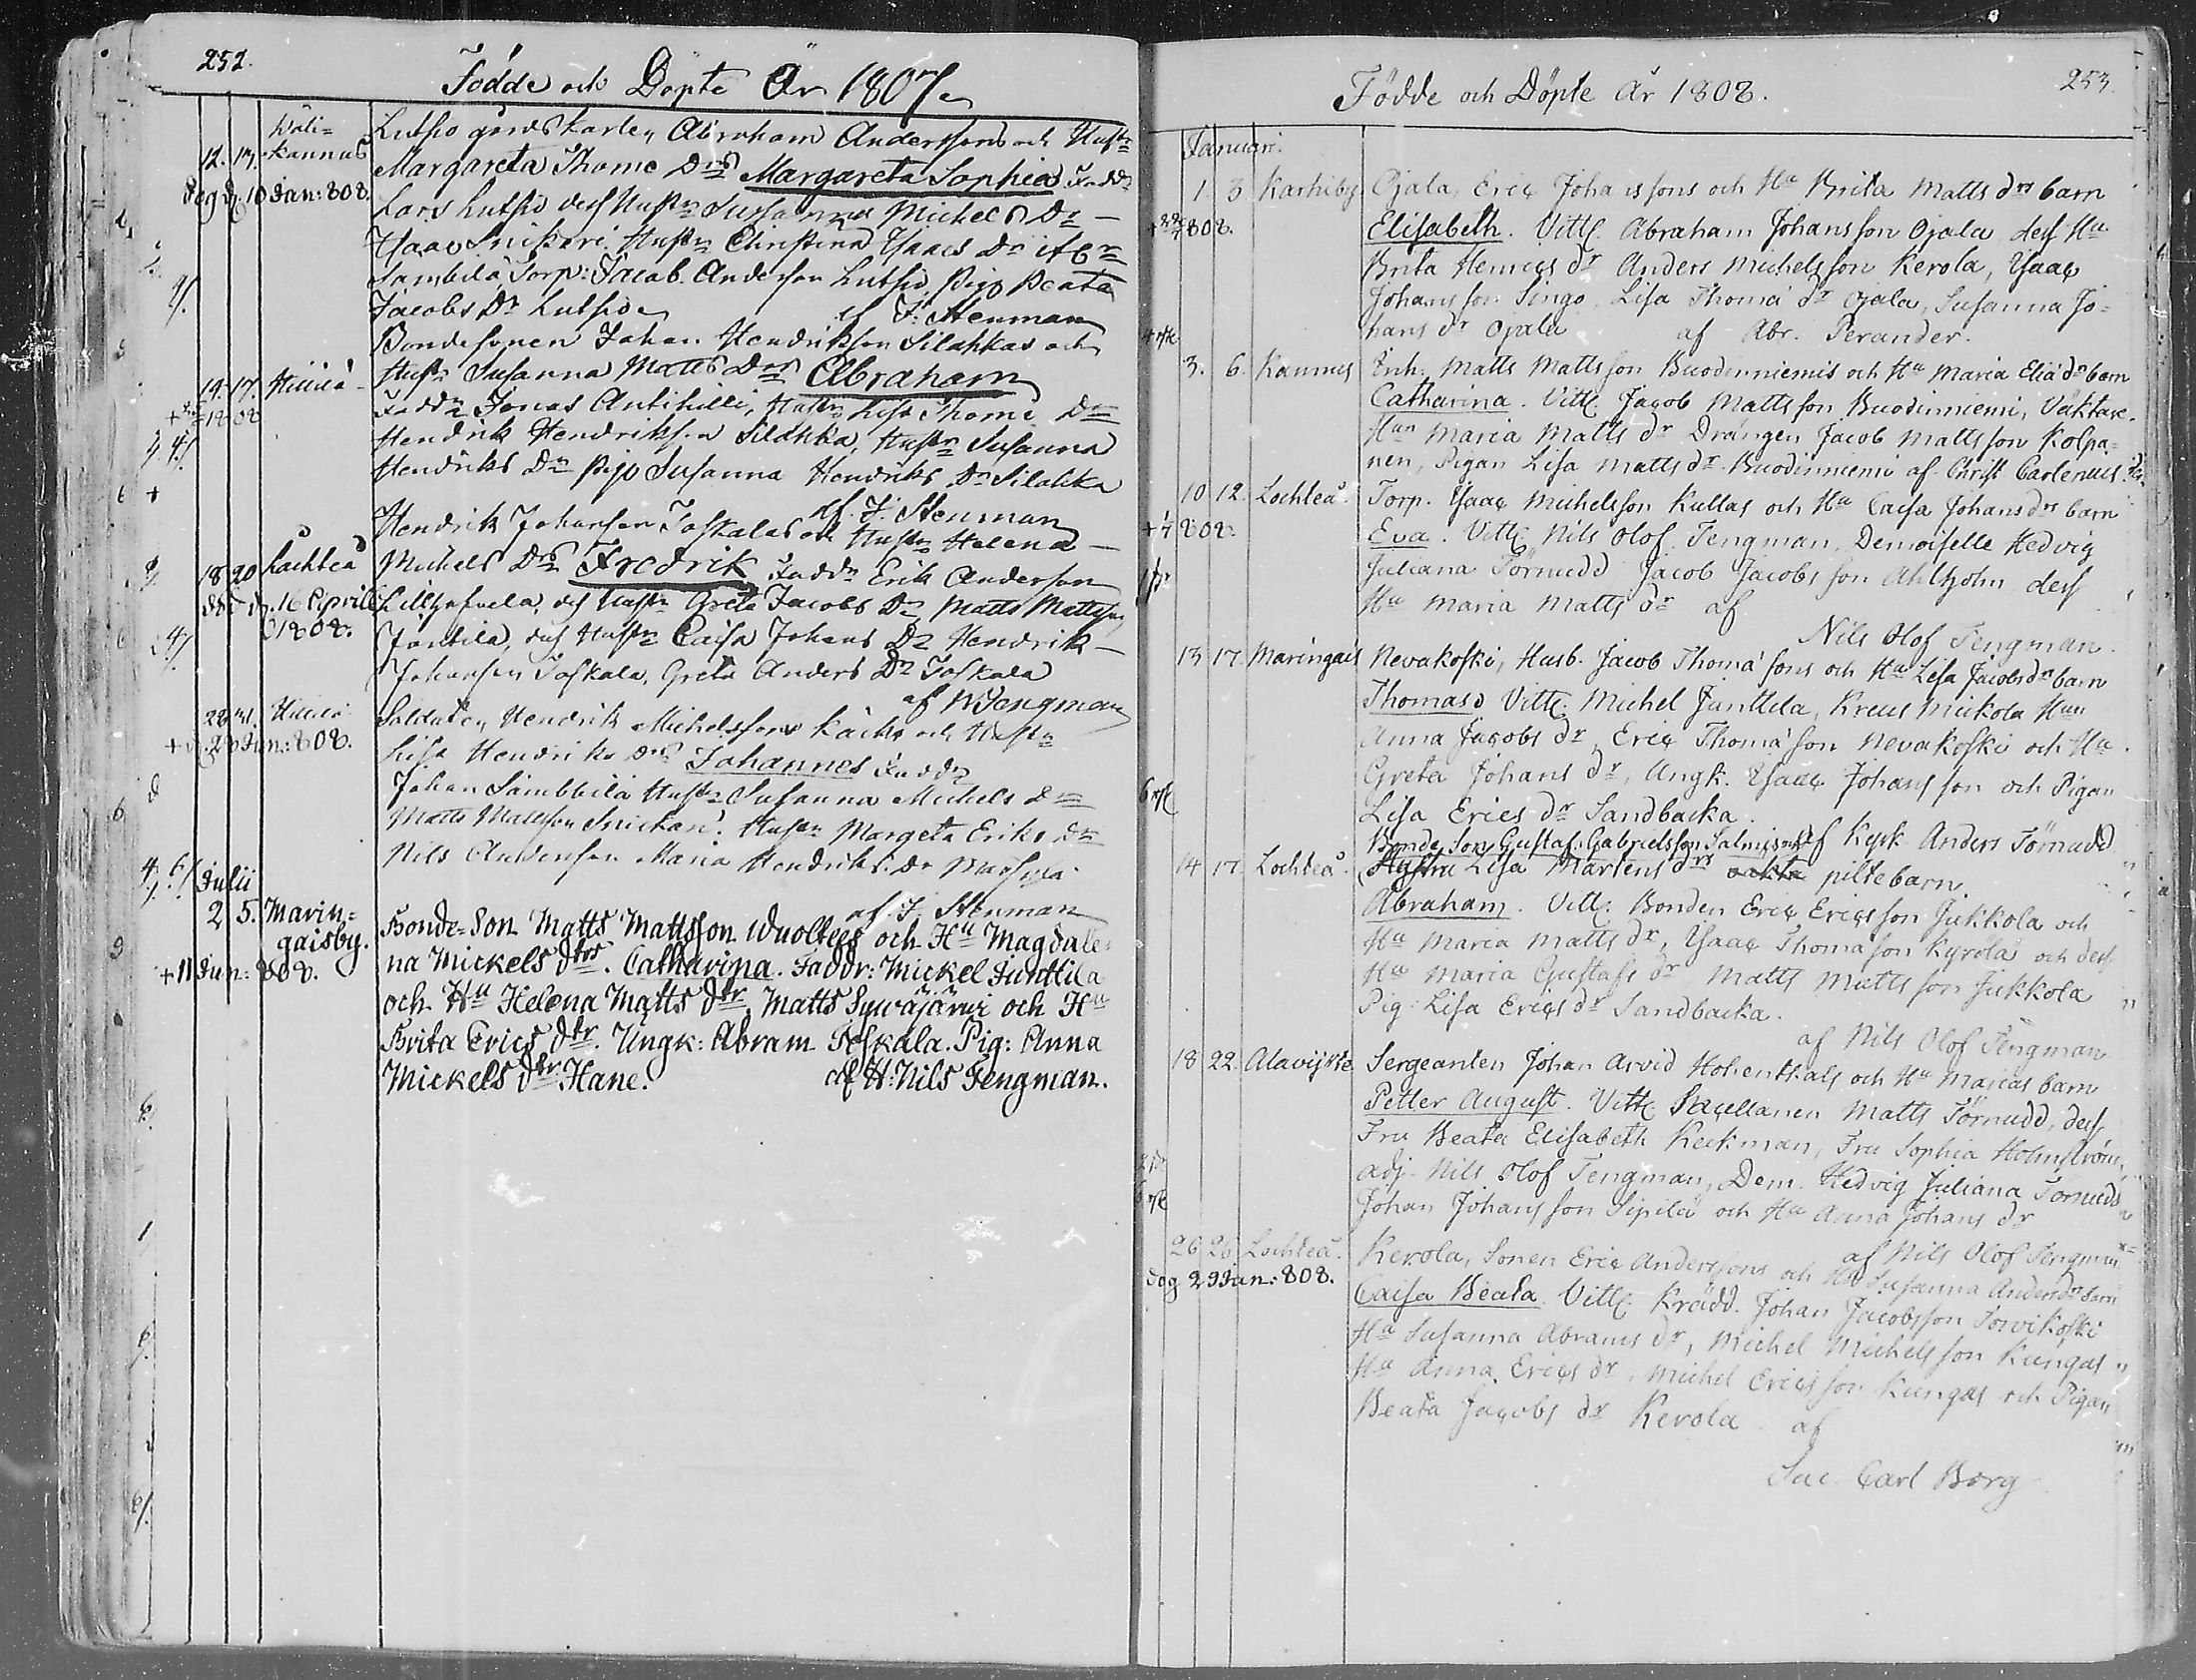 252.
Födde och Döpte År 1807
Wäli=
kannus
12. 13.
Lutsio gårds Karlen Abraham Anderssons och Hustr
Margareta Thome Drs Margareta Sophia Faddr
deg d. 10 Jan: 808.
Lars Lutsio dess Hustr Susanna Michels Dr
Isaac Snikari Hustr Christina Isaacs Dr
Sämbilä Torp: Jacob Anderson Lutsio Pigo Beata
Jacobs Dr Lutsio
af J. Stenman
Bondesonen Johan Hendrikson Silahkas och
14. 17. Hillilä
Hustr Susanna Matts Drs Abraham
Faddr Jonas Antihilli, Hustr Lisa Thome Dr
Hendrik Hendrikson Silahka, Hustr Susanna
Hendriks Dr Pigo Susanna Hendriks Dr Silahka
af J. Stenman
Hendrik Johanson Toskalas och Hustr Helena
18 20 Lochteå
Michels Drs Fredrik Faddr Erik Anderson
d. 16 April
1808.
dess Hustr Greta Jacobs Dr Matts Mattson
Juntila, dess Hustr Caisa Johans Dr Hendrik
Johanson Toskala, Greta Anders Dr Toskala
af N Tengman
Hillilä
Soldaten Hendrik Michelssons Käck och Hustr
+ d. 26 Jun: 808.
Lisa Hendriks Drs Johannes Faddr
Johan Sämbbilä Hustr Susanna Michels Dr
Matts Mattson Snickari. Hustr Margeta Eriks Dr
Nils Anderson Maria Hendriks Dr
af J. Stenman
Julii
2 5. Marin=
gaisby.
Bonde-Son Matts Mattsson Wuoltees och Hu Magdale=
na Mickels dtrs. Catharina. Faddr: Mickel Junttila
+ 11 Jun: 808.
och Hu Helena Matts dtr, Matts Sywäjärwi och Hu
Brita Erics dtr. Ungk: Abram Toskala. Pig: Anna
Mickels dtr Hane.
af H: Nils Tengman.
253.
Födde och Döpte År 1808.
Januari.
1 3 Karhiby
Ojala, Eric Johanssons och Hu Brita Matts drs barn
808.
Elisabeth. Vittn. Abraham Johansson Ojala dess Hu
Brita Henrics dr Anders Michelsson Kerola, Isaac
Johansson Singo, Lisa Thoma dr Ojala, Susanna Jo=
hans dr Ojala af Abr. Perander.
3. 6. Kannus
Inh. Matts Mattsson Buodinniemis och Hu Maria Elia dr barn
Catharina. Vittn. Jacob Mattsson Buodinniemi, Väktare.
Hun Maria Matts dr Drängen Jacob Mattsson Kolpa=
nen, Pigan Lisa Matts dr Buodinniemi af Christ. Carlenius
10 12. Lochteå.
Torp. Isaac Michelsson Kullas och Hu Caisa Johans drs barn
808.
Eva. Vittn. Nils Olof Tengman, Demoiselle Hedvig
Juliana Törnudd Jacob Jacobsson Ahlholm dess
Hu Maria Matts dr af
Nils Olof Tengman.
13 17. Maringais
Nevakoski, Husb. Jacob Thomä sons och Hu Lisa Jacobs dr barn
Thomas Vittn. Michel Junttila, Kreus Mickola Hun
Anna Jacobs dr, Eric Thomä son Nevakoski och Hu
Greta Johans dr, Ungk. Isaac Johansson och Pigan
Lisa Erics dr Sandbacka.
af Kyrk. Anders Törnudd
Bonde Son Gustaf Gabrielsson Salmis och
14 17 Lochteå.
Hustru Lisa Mårtens drs oäkta piltebarn
Abraham. Vittn: Bonden Eric Ericsson Jukkola och
Hu Maria Matts dr, Isaac Thomasson Kyrola och dess
Hu Maria Gustafs dr Matts Mattsson Jukkola
Pig. Lisa Erics dr Sandbacka.
af Nils Olof Tengman
18 22. Alavijrre
Sergeanten Johan Arvid Hohenthals och Hu Marias barn
Petter August. Vittn. Sacellanen Matts Törnudd, dess
Fru Beata Elisabeth Keckman, Fru Sophia Holmström,
Adj. Nils Olof Tengman, Dem. Hedvig Juliana Törnudd
Johan Johansson Sipilä och Hu Anna Johans dr
af Nils Olof Tengman
26 26 Lochteå.
Kerola, Sonen Eric Anderssons och Hu Susanna Anders dr barn
dog 29 Jan: 808.
Caisa Beata. Vittn. Krädd. Johan Jacobsson Torvikoski
Hu Susanna Abrams dr, Michel Michelsson Kungas
Hu Anna Erics dr, Michel Ericsson Kungas och Pigan
Beata Jacobs dr Kerola af
Sac. Carl Borg